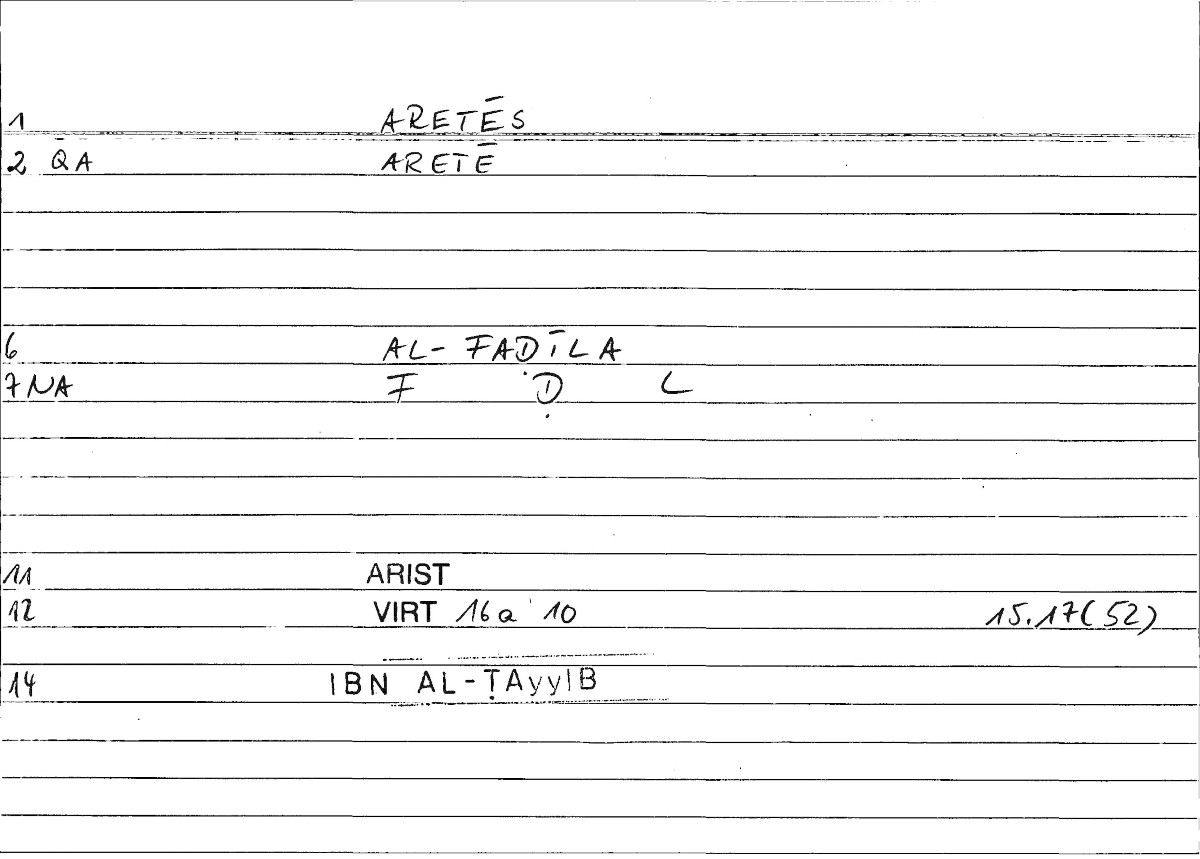 1 ARETĒS
2 QA ARETĒ
6 AL-FAḌĪLA
7 NA F Ḍ L
11 ARIST
12 VIRT 16a 10 15.17(52)
14 IBN AL-ṬAyyIB